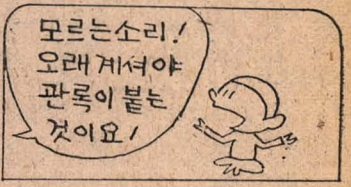 모르는소리!
오래 계셔야
관록이 붙는
것이요!